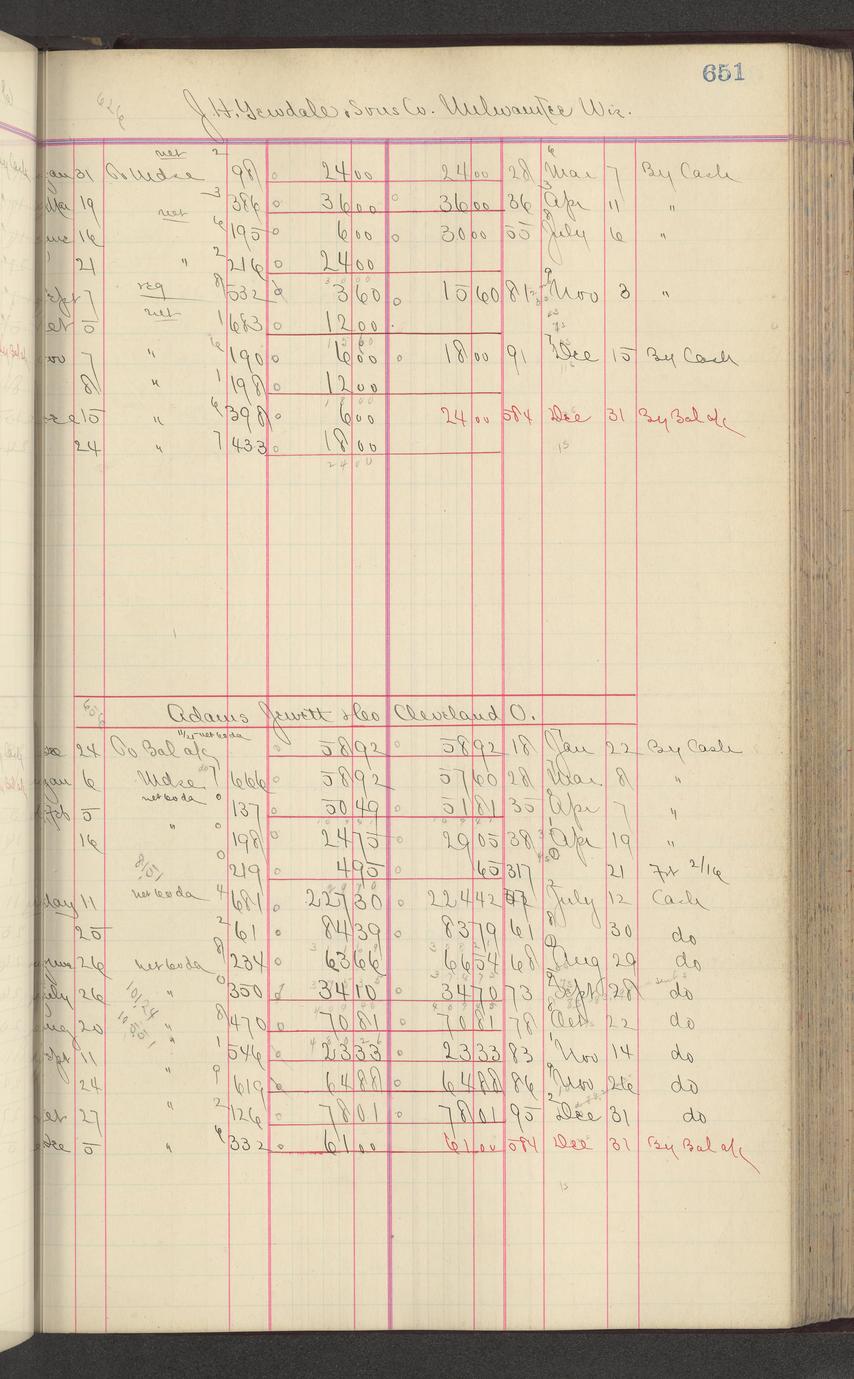 651
626
J.H. Yewdale & Sons Co. Milwaukee Wis.
net 2 6
an 31 To Mdse 98 24 00 24 00 28 Mar 7 By Cash
Mar 19 3 386 36 00 36 00 36 Apr 11 "
16 net 6 195 6 00 30 00 55 July 6 "
21 " 2 216 24 00
pt 7 reg 8 532 3 60 15 60 81 Nov 3 "
ct 5 net 1 683 12 00
15 60
ov 7 " 6 190 6 00 18 00 91 Dec 15 By Cash
8 " 1 198 12 00
18 00
ec 15 " 6 398 6 00 24 00 584 Dec 31 By Bal a/c
24 " 7 433 18 00 15
24 00
Adams Jewett & Co Cleveland O.
24 To Bal a/c 58 92 58 92 18 Jan 22 By Cash
an 6 Mdse 7 666 58 92 57 60 28 Mar 8 "
Feb 5 net 60 da 0 137 50 49 51 81 35 Apr 7 "
16 " 0 198 24 75 29 05 38 Apr 19 "
0 219 4 95 65 317 21 Frt 2/16
May 11 net 60 da 4 681 227 30 224 42 July 12 Cash
25 2 61 84 39 83 79 61 30 do
une 26 net 60 da 8 234 63 66 66 54 68 Aug 29 do
uly 26 " 0 350 34 10 34 70 73 Sept 28 do
ug 20 " 8 470 70 81 70 81 78 Oct 22 do
pt 11 " 1 546 23 33 23 33 83 Nov 14 do
24 " 9 619 64 88 64 88 86 Nov 26 do
ct 27 " 2 126 78 01 78 01 95 Dec 31 do
Dec 5 " 6 332 61 00 61 00 584 Dec 31 By Bal a/c
15